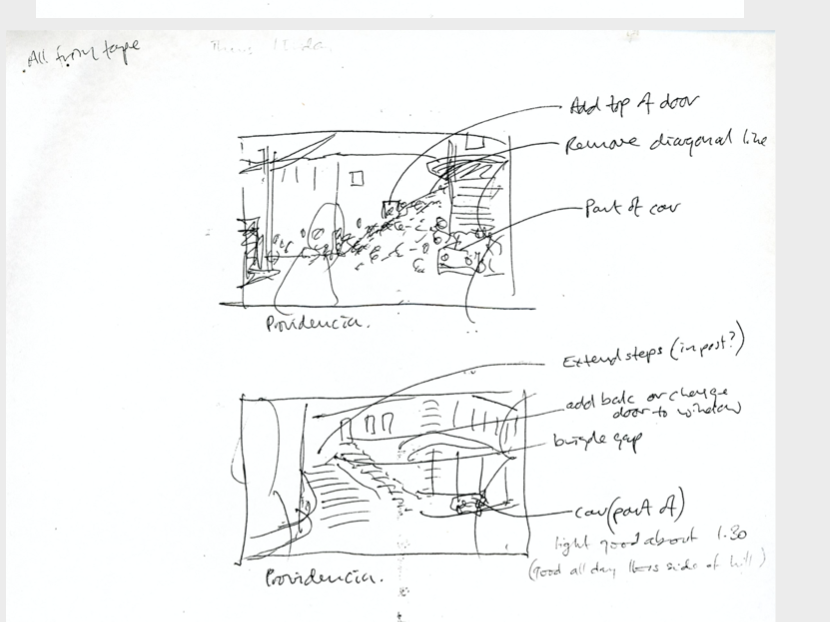 All from tape
Add top of door
Remove diagonal line
Part of car
Providencia.
Extend steps (in post?)
add balc or change
door to window
bridge gap
car (part of)
light good about 1.30
(good all day this side of hill)
Providencia.